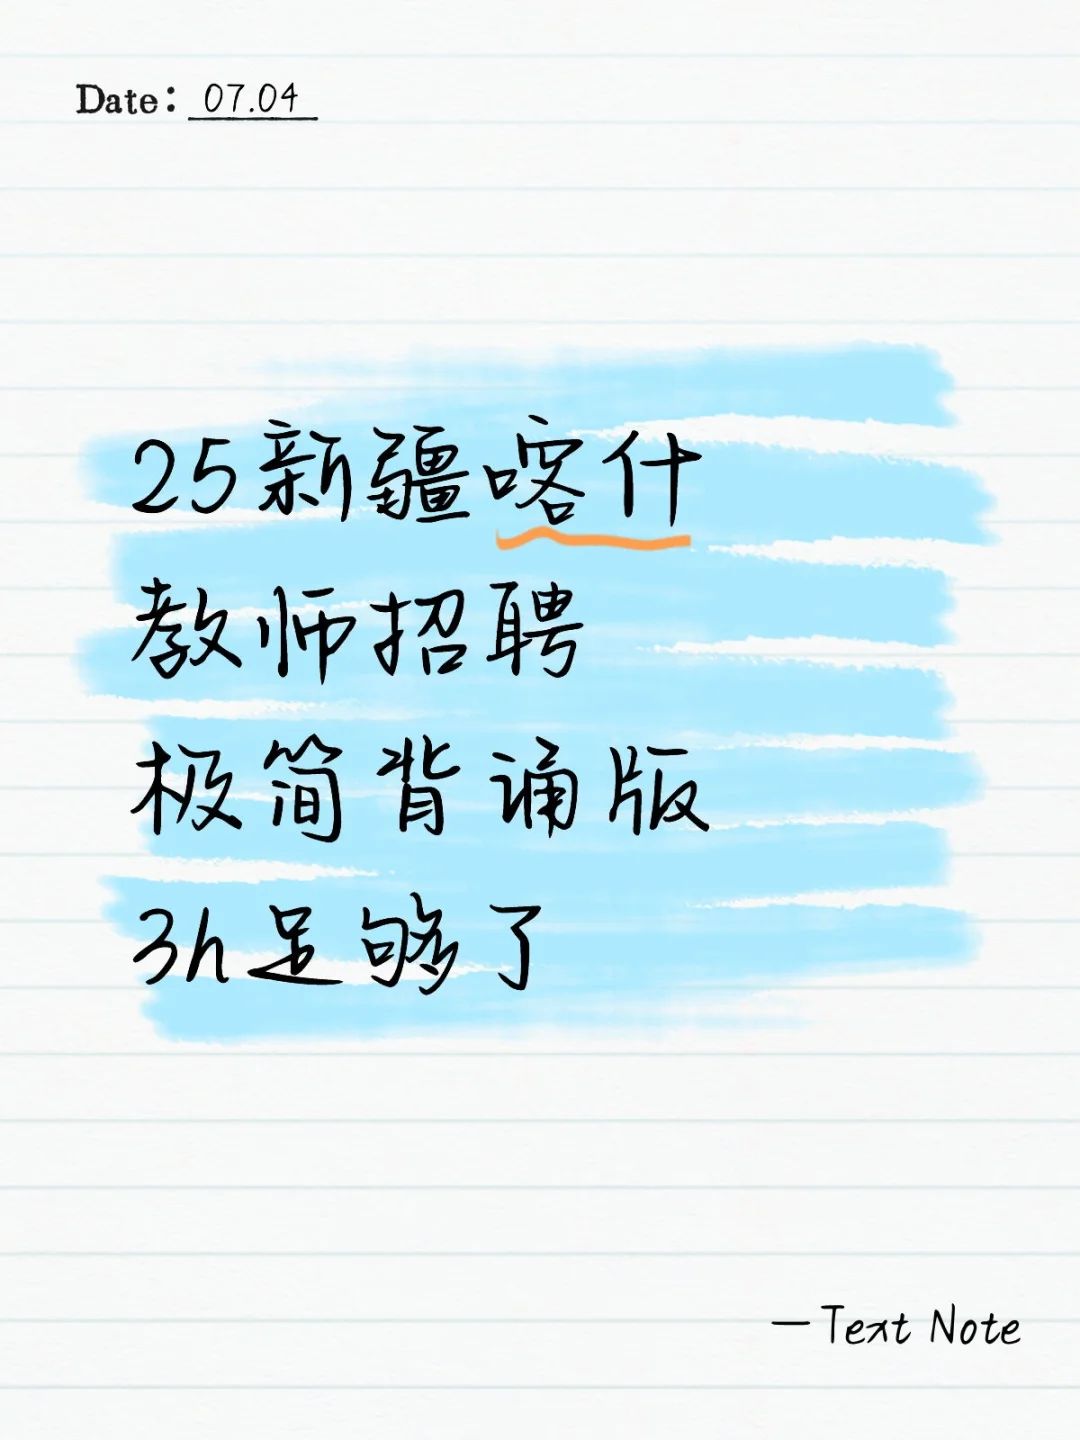 Date: 07.04
25新疆喀什
教师招聘
极简背诵版
3h足够了
—Text Note